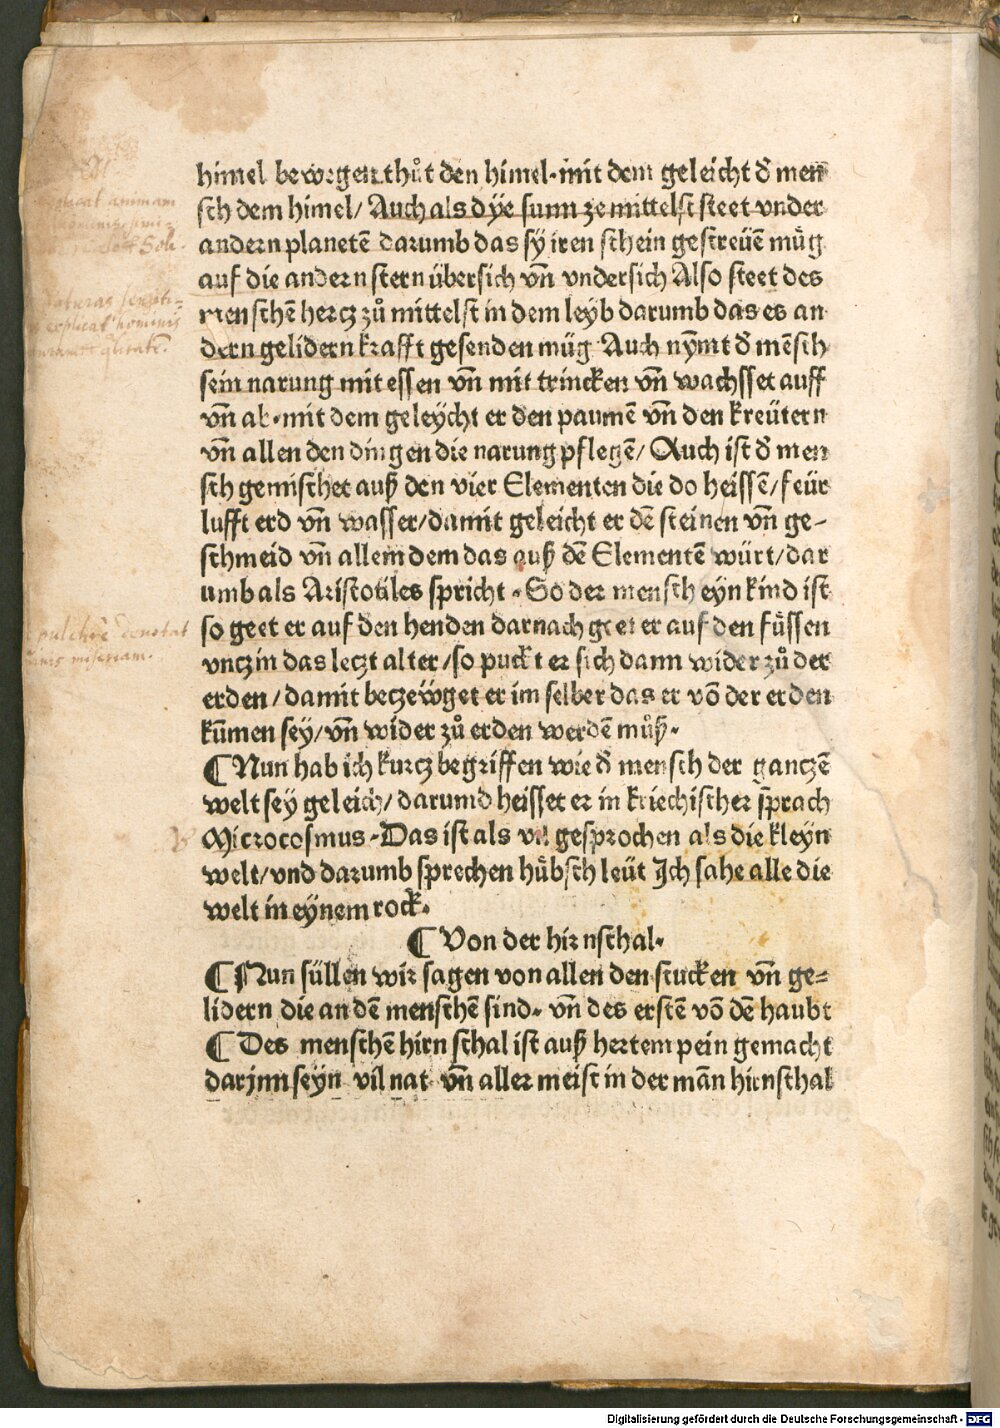 himel bewegen thůt den himel. mit dem geleicht d̕ men
sch dem himel/ Auch als dÿe sunn ze mittelst steet vnder
andern planetē darumb das sÿ iren schein gestreüē müg
auf die andern stern übersich vn̄ vndersich Also steet des
menschē hercz zů mittelst in dem leyb darumb das es an
dern gelidern krafft gesenden müg Auch nÿmt d̕ mēsch
sein narung mit essen vn̄ mit trincken vn̄ wachsset auff
vn̄ ab. mit dem geleÿcht er den paumē vn̄ den kreütern
vn̄ allen den dingen die narung pflegē/ Auch ist d̕ men
sch gemischet auß den vier Elementen die do heissē/feür
lufft erd vn̄ wasser/damit geleicht er dē steinen vn̄ ge-
schmeid vn̄ allem dem das auß dē Elementē würt/dar
umb als Aristotiles spricht. So der mensch eyn kind ist
so geet er auf den henden darnach geet er auf den füssen
vncz in das leczt alter/so puckt er sich dann wider zů der
erden/damit beczeüget er im selber das er vō der erden
kūmen sey/vn̄ wider zů erden werdē můß.
¶ Nun hab ich kurcz begriffen wie d̕ mensch der ganczē
welt sey geleich/darumb heisset er in kriechischer sprach
Microcosmus. Das ist als vil gesprochen als die kleyn
welt/vnd darumb sprechen hübsch leüt Ich sahe alle die
welt in eynem rock.
¶ Von der hirnschal.
¶ Nun süllen wir sagen von allen den stucken vn̄ ge=
lidern die an dē menschē sind. vn̄ des erstē vō dē haubt
¶ Des menschē hirnschal ist auß hertem pein gemacht
darjnn seyn vil nat vn̄ aller meist in der mān hirnschal
animam
Soli.
explicat hominis
qlitatē.
pulchrè denotat
miseriam.
Digitalisierung gefördert durch die Deutsche Forschungsgemeinschaft - DFG